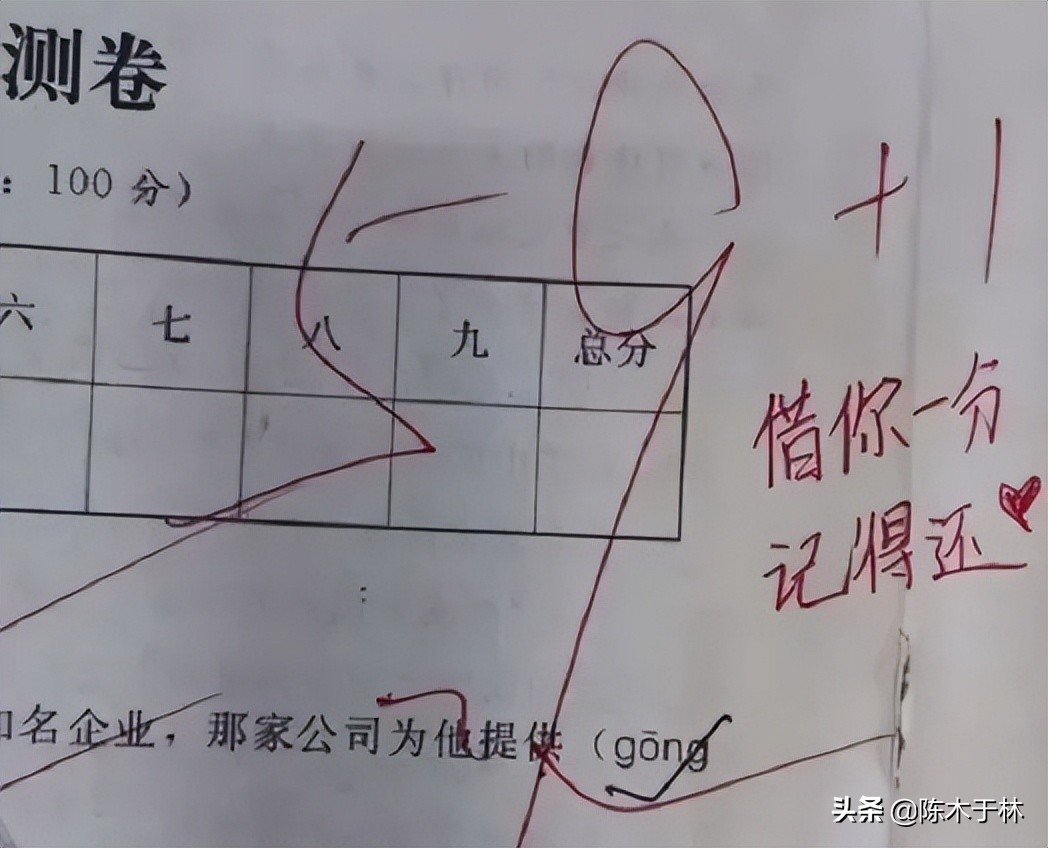 测卷
：100 分）
59 +1
六 七 八 九 总分
借你一分
记得还
名企业，那家公司为他提供（gōng
头条 @陈木于林